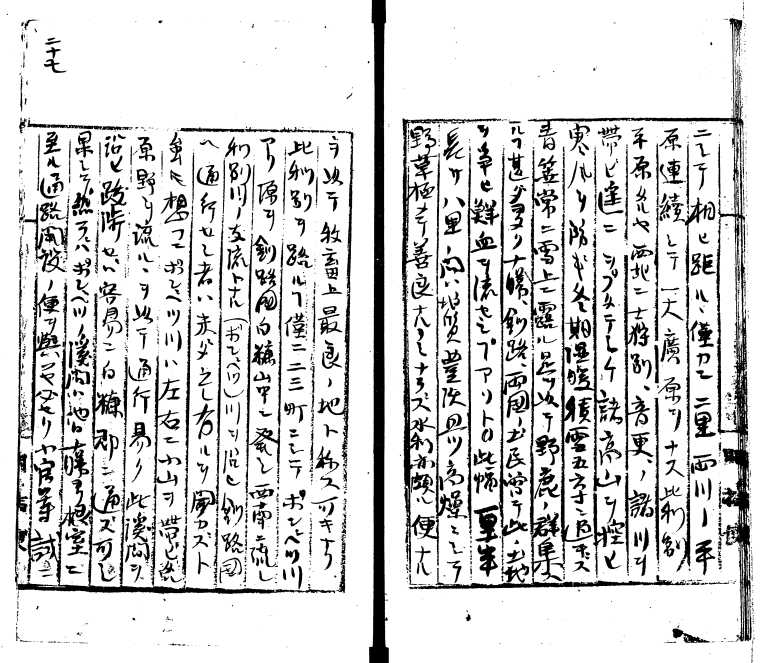 ニシテ相ヒ距ル、僅カニ二里両川ノ平
原連續シテ一大廣原ヲナス此利別
平原タルヤ西北ニ士狩別、音更、ノ諸川ヲ
帯ヒ遙ニ諸高山ヲ控ヒ
寒風ヲ防ギ冬期温暖積雪五六寸ニ過キス
青笹常ニ雪上ニ露ル是ヲ以テ野鹿ノ群集
スル甚タ多ク十勝、釧路、両國ノ土民曽テ此ノ土地
ヲ争ヒ鮮血ヲ流セシ アリト 此幅一里半
長サ八里ノ間ハ地質豊沃且ツ高燥ニシテ
野草極メテ善良ナルノミナラズ水利亦頗ル便ナル
ヲ以テ牧畜上最良ノ地ト称ス可キナリ
此利別ヲ距ルヿ僅ニ二三町ニシテポンベツ川
アリ源ヲ釧路國白糠山中ニ発シ西南ニ流レ
利別川ノ支流トナル(ポンベツ)川ヲ沿ヒ釧路國
ヘ通行セシ者ハ未タ之レ有ルヲ聞カスト
雖モ想フニポンベツ川ハ左右ニ小山ヲ帯ビ
原野ヲ流ルヽヲ以テ通行易ク此渓間ヲ
沿ヒ跋渉セハ容易ニ白糠郡ニ通ズ可シ
果シテ然ラハポンベツノ渓間ハ他日十勝ヨリ根室ニ
至ル通路開設ノ便ヲ與フヘキナリ小官等試ニ
二十七